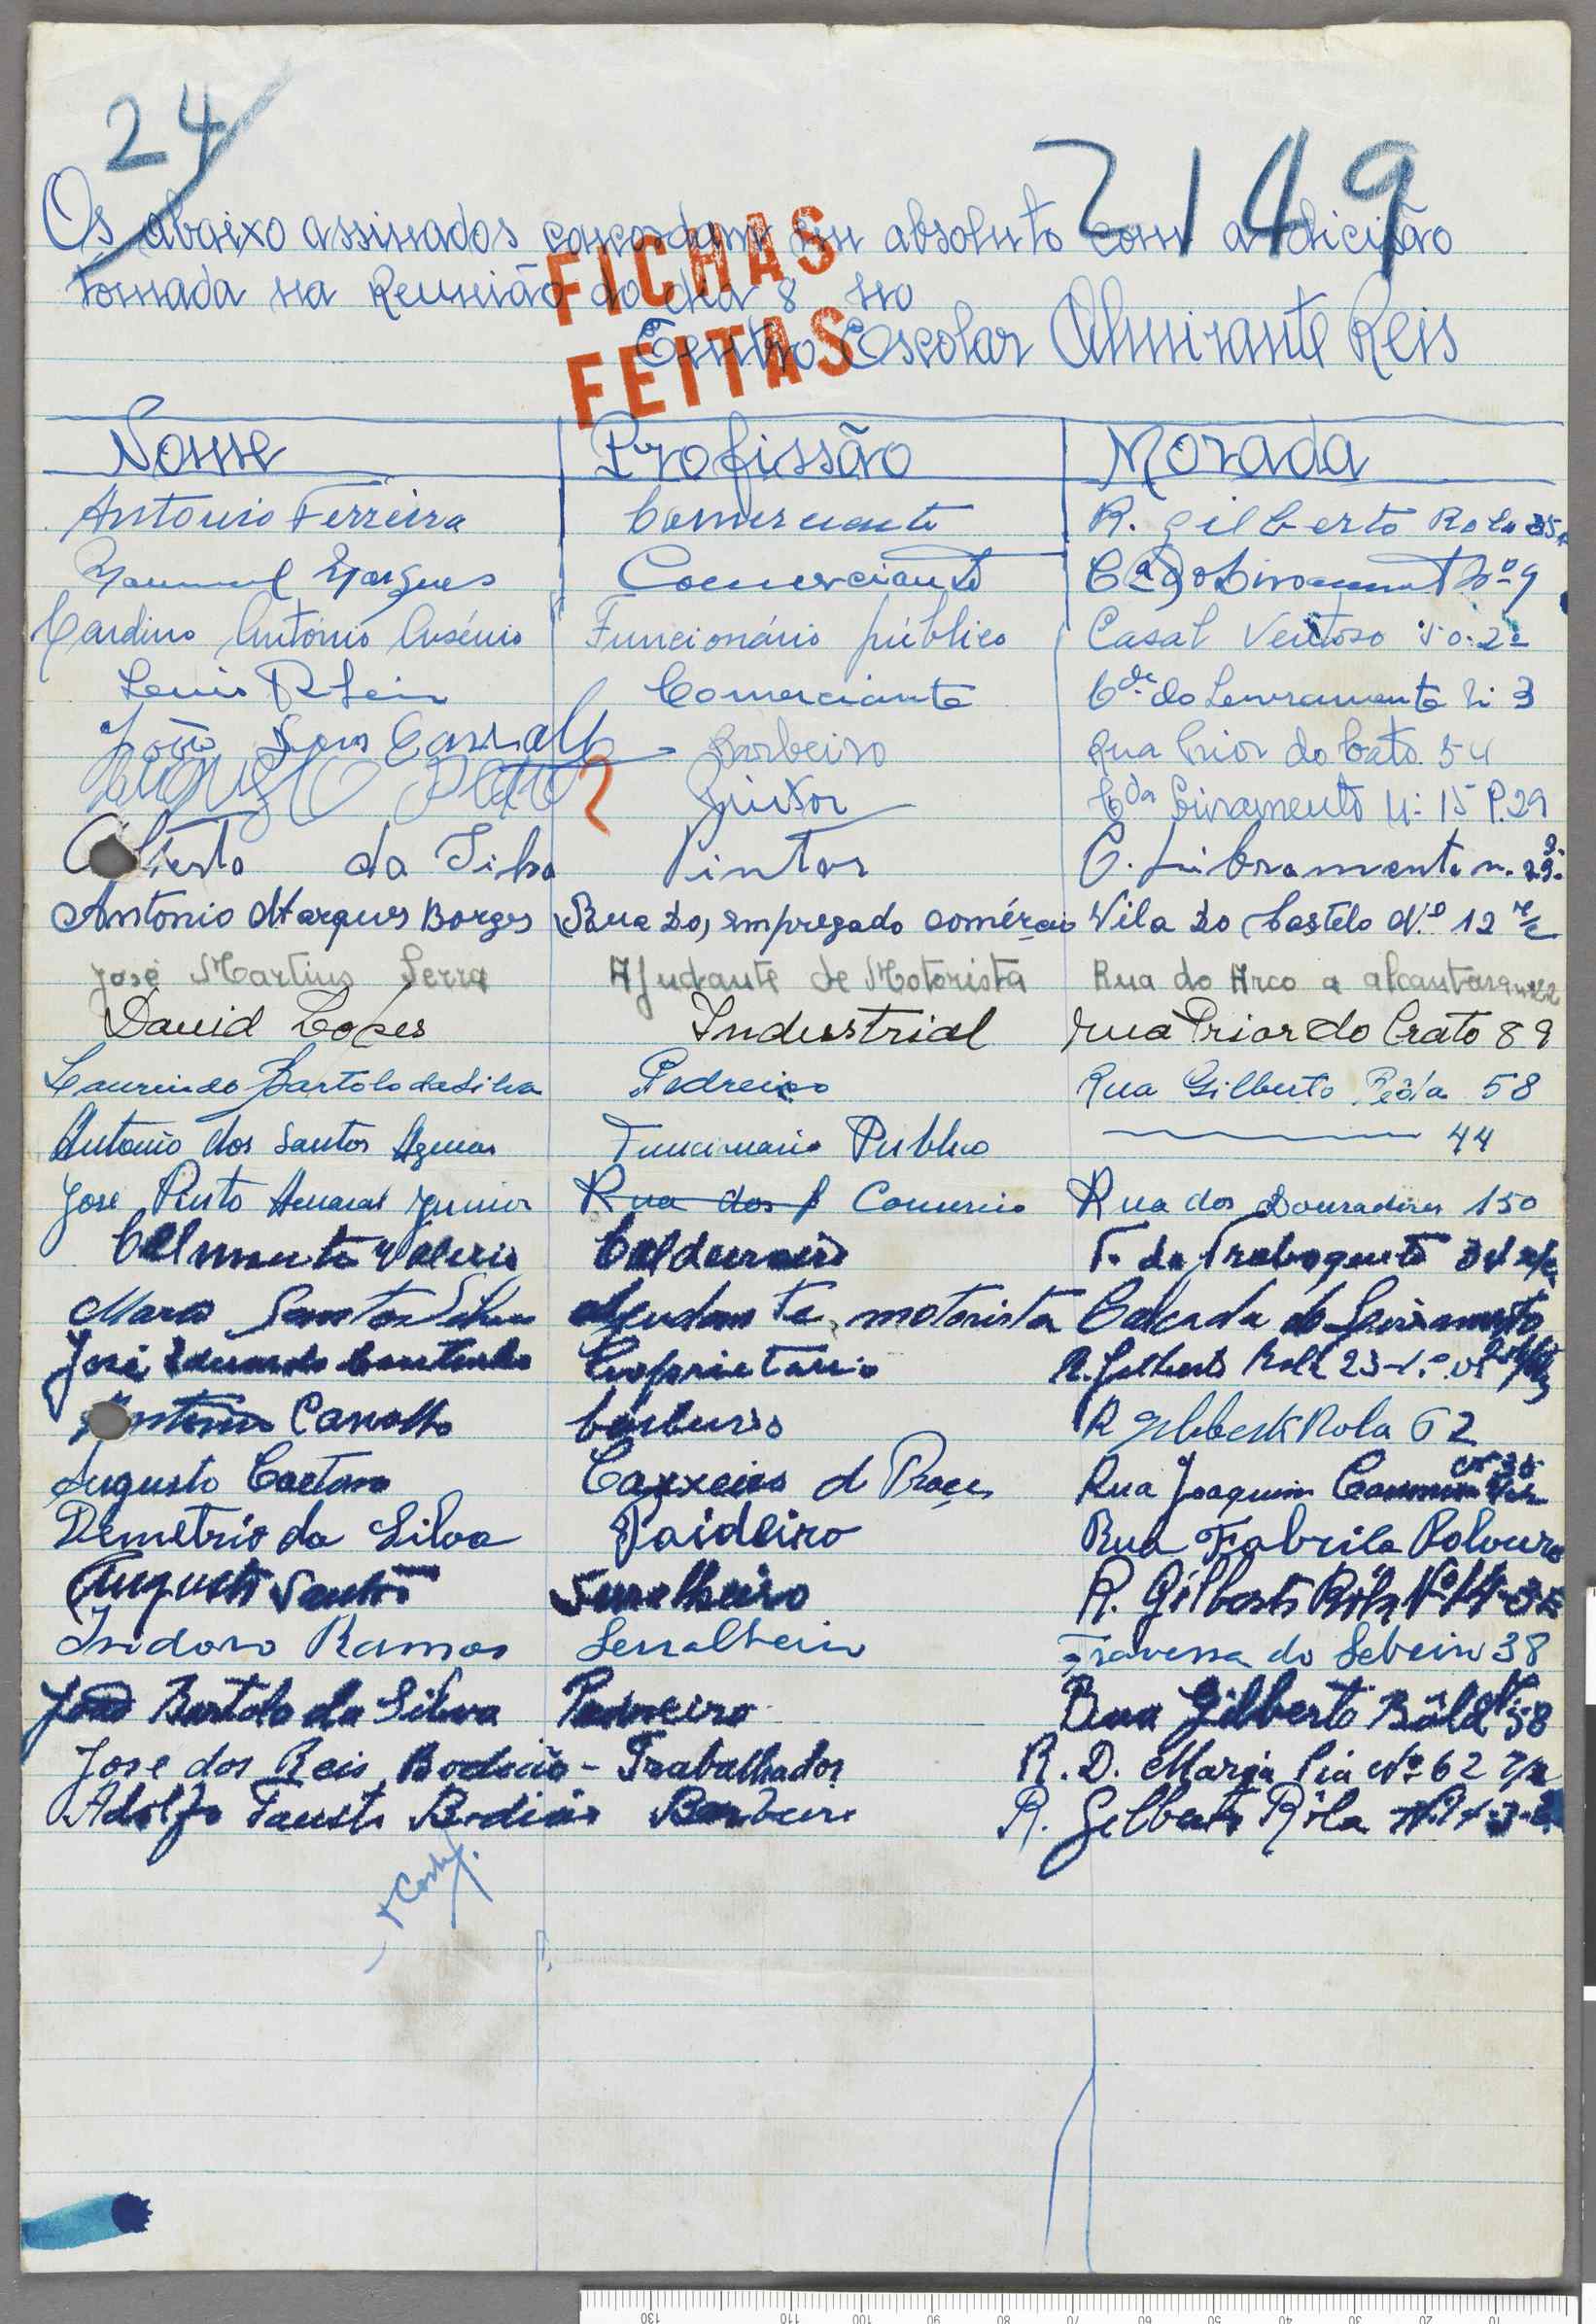 24
2149
Os abaixo assinados concordam em absoluto com a dicisão
tomada na Reunião do dia 8 no
Centro Escolar Almirante Reis
FICHAS
FEITAS
Nome Profissão Morada
Antonio Ferreira Comerciante R. Gilberto Rola 35
Manuel Marques Comerciante Nº 9
Cardino António Arsénio Funcionário público Casal Ventoso 2º
Luis Comerciante do Livramento Nº 3
João Barbeiro Rua Prior do Crato 54
Augusto Pintor Livramento Nº 15 P. 29
da Silva Pintor C. Livramento n. 29
Antonio Marques Borges Rua Do, empregado comércio Vila Do Castelo N.º 12 r/c
José Martins Serra Ajudante de Motorista Rua do Arco a alcantara
David Lopes Industrial rua Prior do Crato 89
Laurindo Bartolo da Silva Pedreiro Rua Gilberto Rôla 58
Antonio dos Santos Funcionario Publico 44
Jose Pinto Amaral Junior Rua dos Comercio Rua dos Douradores 150
Caldeireiro T. do Trabuqueta
Santos Silva motorista Calçada do Livramento
José Eduardo Coutinho Proprietario R. Gilberto Rola 23-1.º
Carvalho barbeiro R Gilberto Rola 62
Augusto Caetano Caxeiro d Praça Rua Joaquim
Demetrio da Silva Paideiro Rua Fabrica Polvura
Augusto Santos Serralheiro R. Gilberto Rôla Nº 14-3
Isidoro Ramos Serralheiro Travessa do Sebeiro 38
João Bartolo da Silva Pedreiro Rua Gilberto Rôla Nº 58
Jose dos Reis - Trabalhador R. D. Maria Pia Nº 62
Adolfo Fausto Barbeiro R. Gilberto Rôla